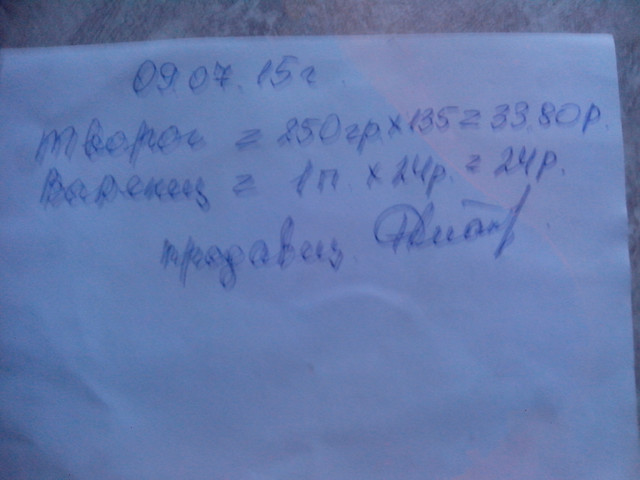 09.07.15г.
творог = 250гр. х 135 = 33.80р.
Варенец = 1п. х 24р. = 24р.
продавец